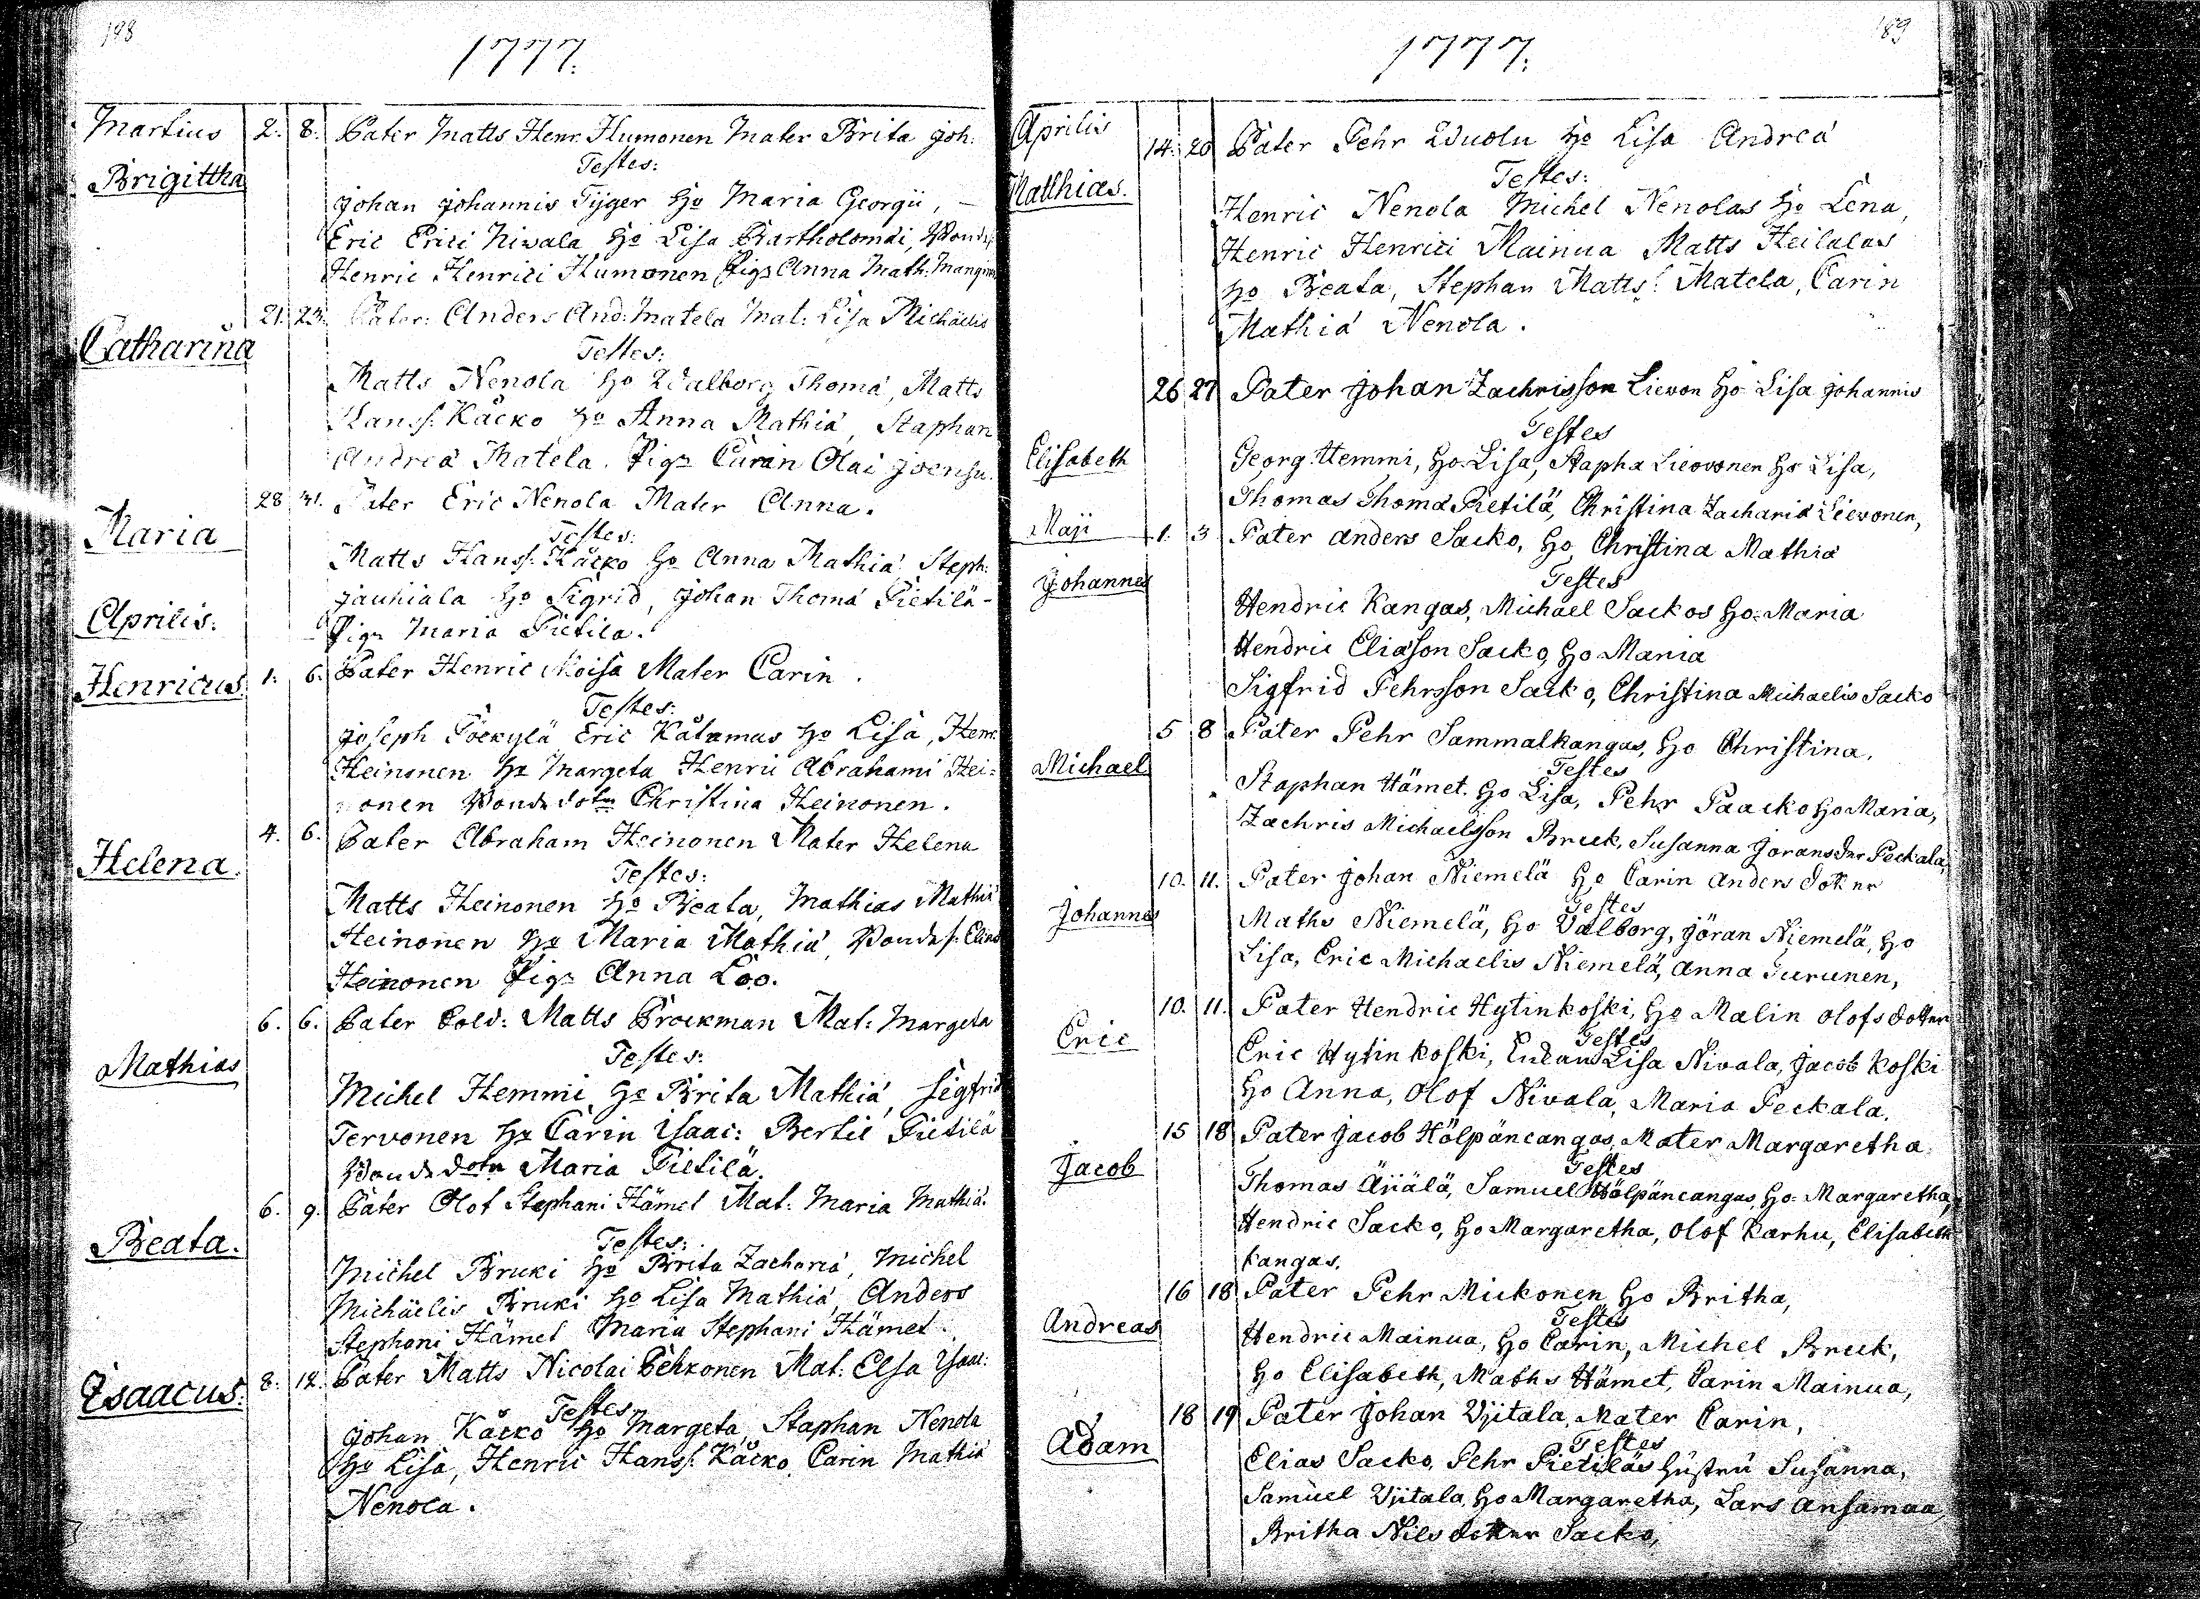 188
1777.
Martius 2. 8. Pater Matts Henr: Humonen Mater Brita Joh:
Brigittha
Testes:
Johan Johannis Tijger Ho Maria Georgii, —
Eric Erici Niwala Ho Lisa Bartholomäi,
Henric Henrici Humonen Pig: Anna Math:
Catharina 21. 23. Pater: Anders And: Matela Mat: Lisa Michäelis
Testes:
Matts Nenola Ho Walborg Thomä, Matts
Hanss: Käcko Ho Anna Mathiä, Staphan
Andreä Matela. Pig: Carin Olai Joensu.
Maria 28 31. Pater Eric Nenola Mater Anna.
Testes:
Matts Hanss: Käcko Ho Anna Mathiä Steph:
Jauhiala Ho Sigrid, Johan Thomä Pietilä -
Pig: Maria Pietilä.
Aprilis:
Henricus 1. 6. Pater Henric Moisa Mater Carin.
Testes:
Joseph Eric Ho Lisa, Henr:
Heinonen Ho Margeta Henric Abrahami Hei=
nonen Christina Heinonen.
Helena. 4. 6. Pater Abraham Heinonen Mater Helena
Testes:
Matts Heinonen Ho Beata, Mathias Mathiä
Heinonen Ho Maria Mathiä, Elias
Heinonen Pig: Anna Loo.
Mathias 6. 6. Pater Sold: Matts Brockman Mat: Margeta
Testes:
Michel Hemmi Ho Brita Mathiä, Sigfrid
Tervonen Ho Carin Isaac: Bertil Pietilä
Maria Pietilä.
Beata. 6. 9. Pater Olof Stephani Hämet Mat: Maria Mathiä.
Testes:
Michel Bruki Ho Brita Zachariä, Michel
Michäelis Bruki Ho Lisa Mathiä, Anders
Stephani Hämet Maria Stephani Hämet.
Isaacus: 8. 12. Pater Matts Nicolai Pekkonen Mat: Elsa Isaac:
Testes
Johan Käcko Ho Margeta, Staphan Nenola
Ho Lisa, Henric Hanss: Käcko, Carin Mathiä
Nenola.
189
1777.
Aprilis 14. 20 Pater Pehr Wuolu Ho Lisa Andreä
Matthias.
Testes:
Henric Nenola Michel Nenolas Ho Lena,
Henric Henrici Mainua Matts Heilalas
Ho Beata, Stephan Matts: Matela, Carin
Mathiä Nenola.
26 27 Pater Johan Zachrisson Lievon Ho Lisa Johannis
Testes
Elisabeth Georg Hemmi, Ho Lisa, Stapha Lievonen Ho Lisa,
Thomas Thomä Pietilä, Christina Zachariä Lievonen,
Maji 1. 3 Pater Anders Sacko, Ho, Christina Mathiä
Johannes
Testes
Hendric Kangas, Michael Sackos Ho Maria
Hendric Eliäson Sacko, Ho Maria
Sigfrid Pehrsson Sacko, Christina Michaelis Sacko
5 8 Pater Pehr Sammalkangas, Ho Christina,
Testes
Michael Staphan Hämet. Ho Lisa, Pehr Paacko Ho Maria,
Zachris Michaelsson Bruck, Susanna Jörans dtr Peckala,
10. 11. Pater Johan Niemelä Ho Carin Anders dotter
Testes
Johannes Maths Niemelä, Ho Valborg, Jöran Niemelä, Ho
Lisa, Eric Michaelis Niemelä, Anna Jurunen,
10. 11. Pater Hendric Hytinkoski, Ho Malin Olofs dotter
Testes
Eric Eric Hytinkoski, Enkan Lisa Nivala, Jacob Koski
Ho Anna, Olof Nivala, Maria Peckala.
15 18 Pater Jacob Hölpäncangas Mater Margaretha
Testes
Jacob Thomas Äijälä, Samuel Hölpäncangas, Ho Margaretha,
Hendric Sacko, Ho Margaretha, Olof Karhu, Elisabeth
Kangas.
16 18 Pater Pehr Mickonen Ho Britha,
Testes
Andreas Hendric Mainua, Ho Carin, Michel Bruck,
Ho Elisabeth, Maths Hämet, Carin Mainua,
18 19 Pater Johan Vjitala, Mater Carin,
Testes
Adam Elias Sacko, Pehr Pietiläs Hustru Susanna,
Samuel Vjitala Ho Margaretha, Lars Ansamaa,
Britha Nils dotter Sacko,